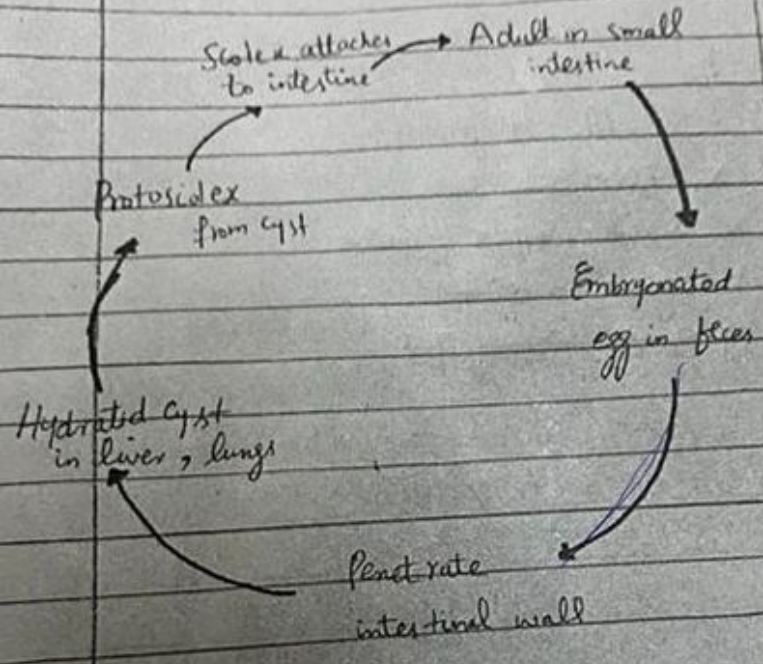 Scolex attaches
to intestine
Adult in small
intestine
Embryonated
egg in feces
Penetrate
intestinal wall
Hydrated Cyst
in liver, lungs
Protoscolex
from cyst